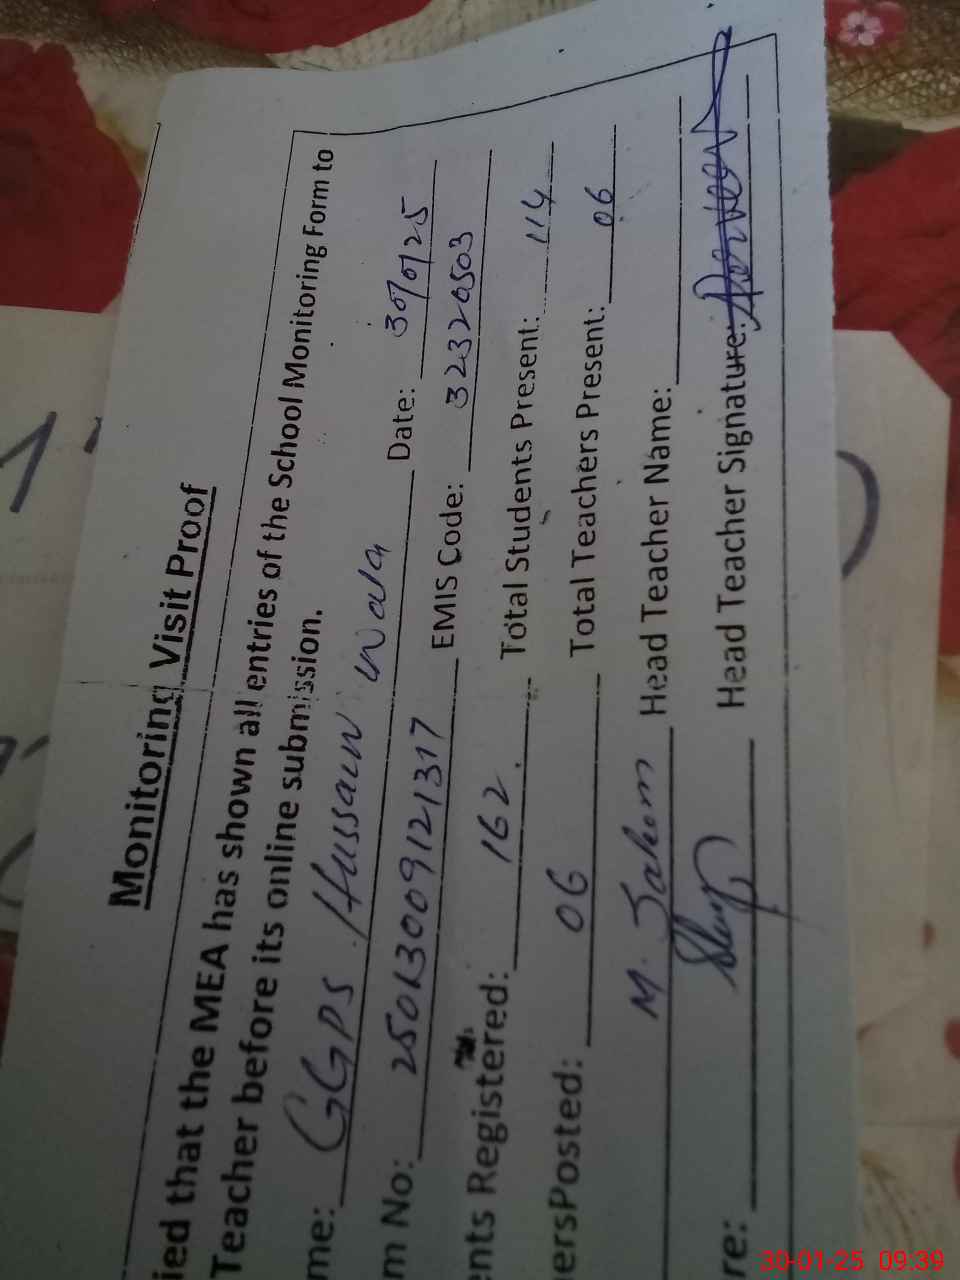 Monitoring Visit Proof
ied that the MEA has shown all entries of the School Monitoring Form to
Teacher before its online submission.
me: GGPS Hussain Wala Date: 30/1/25
m No: 25013009121317 EMIS Code: 32320503
ents Registered: 162 Total Students Present: 114
ersPosted: 06 Total Teachers Present: 06
M. Head Teacher Name:
re: Head Teacher Signature: Perveen
30-01-25 09:39